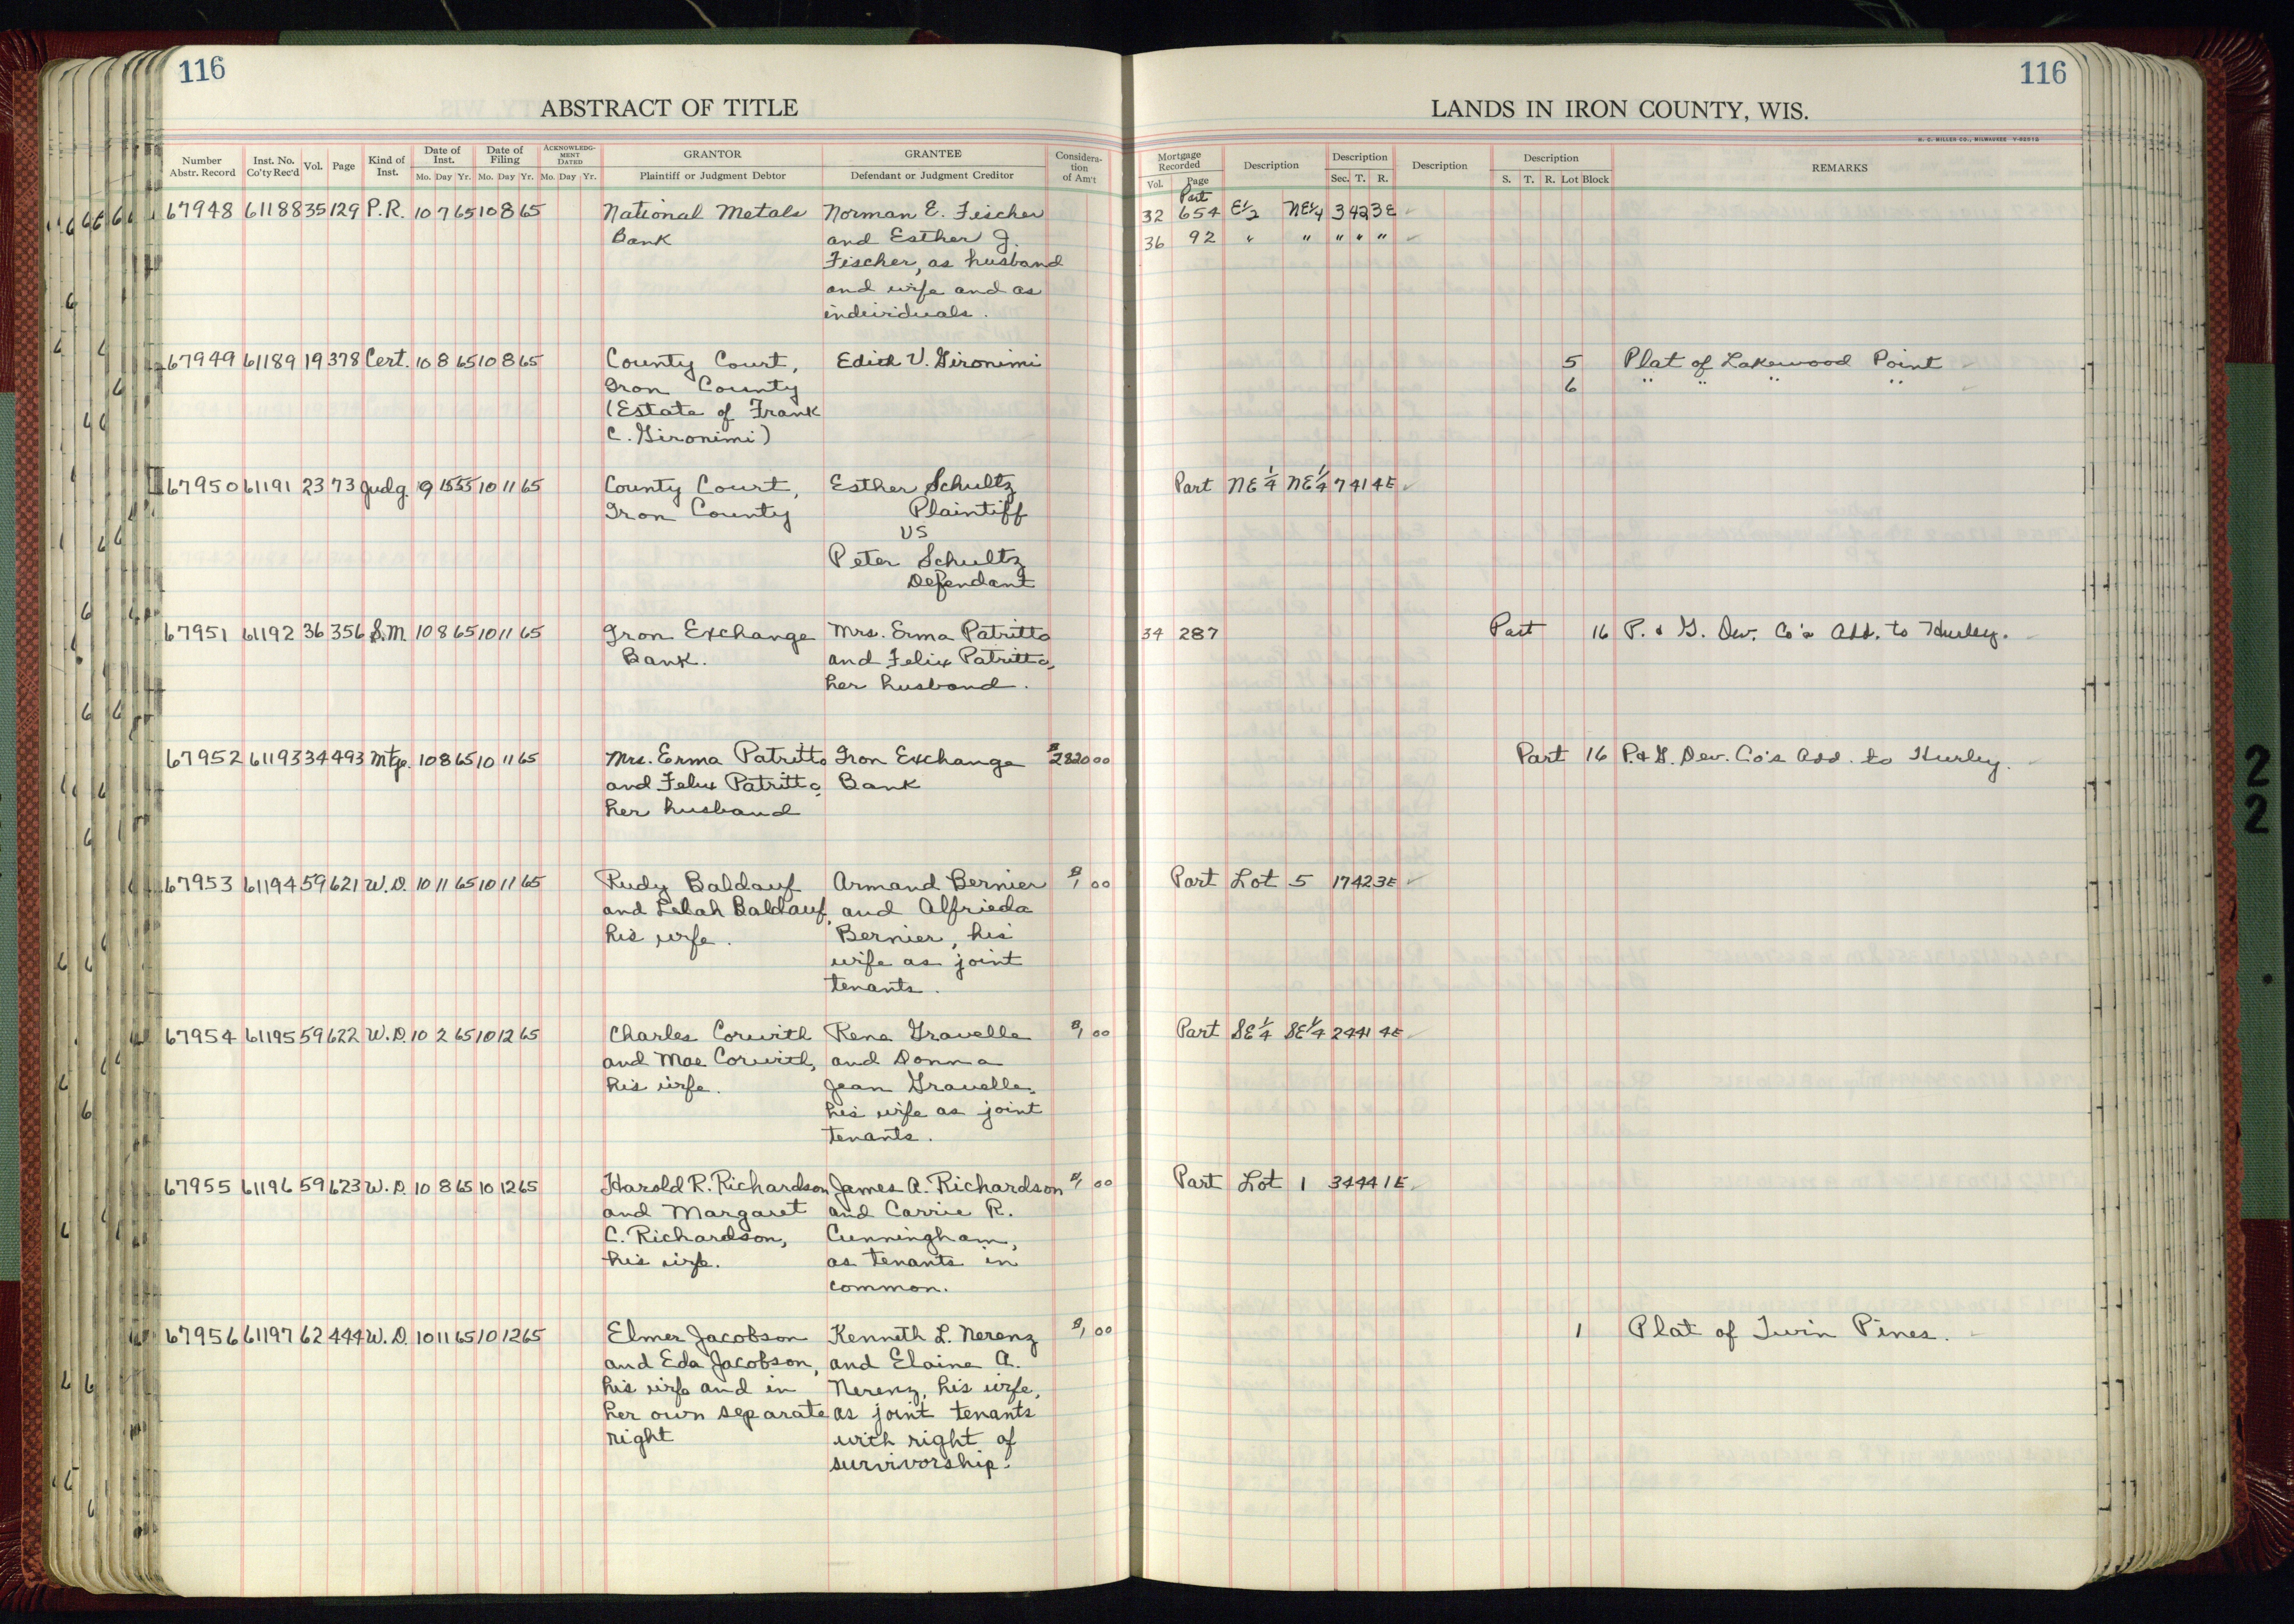 116
116
ABSTRACT OF TITLE
LANDS IN IRON COUNTY, WIS.
H. C. MILLER CO., MILWAUKEE
Number Abstr. Record Inst. No. Co'ty Rec'd Vol. Page Kind of Inst. Date of Inst. Mo. Day Yr. Date of Filing Mo. Day Yr. ACKNOWLEDGMENT DATED Mo. Day Yr. GRANTOR Plaintiff or Judgment Debtor GRANTEE Defendant or Judgment Creditor Consideration of Am't
Mortgage Recorded Vol. Page Description Description Sec. T. R. Description Description S. T. R. Lot Block REMARKS
Part
67948 61188 35 129 P.R. 10 7 65 10 8 65 National Metals Norman E. Fischer 32 654 E1/2 NE1/4 3 42 3E
Bank and Esther J. 36 92 " " " " "
Fischer, as husband
and wife and as
individuals.
67949 61189 19 378 Cert. 10 8 65 10 8 65 County Court, Edith V. Gironimi 5 Plat of Lakewood Point
Iron County 6 " " " "
(Estate of Frank
C. Gironimi)
67950 61191 23 73 Judg. 9 15 55 10 11 65 County Court, Esther Schultz Part NE 1/4 NE 1/4 7 41 4E
Iron County Plaintiff
VS
Peter Schultz
Defendant
67951 61192 36 356 S.M. 10 8 65 10 11 65 Iron Exchange Mrs. Erma Patritto 34 287 Part 16 P. & G. Dev. Co's Add. to Hurley.
Bank. and Felix Patritto,
her husband.
67952 61193 34 493 Mtge. 10 8 65 10 11 65 Mrs. Erma Patritto Iron Exchange $2820 00 Part 16 P. & G. Dev. Co's Add. to Hurley.
and Felix Patritto, Bank
her husband
67953 61194 59 621 W.D. 10 11 65 10 11 65 Rudy Baldauf Armand Bernier $1 00 Part Lot 5 17 42 3E
and Lelah Baldauf, and Alfrieda
his wife. Bernier, his
wife as joint
tenants.
67954 61195 59 622 W.D. 10 2 65 10 12 65 Charles Corwith Rene Gravelle $1 00 Part SE 1/4 SE 1/4 24 41 4E
and Mae Corwith, and Donna
his wife. Jean Gravelle,
his wife as joint
tenants.
67955 61196 59 623 W.D. 10 8 65 10 12 65 Harold R. Richardson James A. Richardson $1 00 Part Lot 1 34 44 1E
and Margaret and Carrie R.
C. Richardson, Cunningham,
his wife. as tenants in
common.
67956 61197 62 444 W.D. 10 11 65 10 12 65 Elmer Jacobson Kenneth L. Nerenz $1 00 1 Plat of Twin Pines.
and Eda Jacobson, and Elaine A.
his wife and in Nerenz, his wife,
her own separate as joint tenants
right with right of
survivorship.
2
2